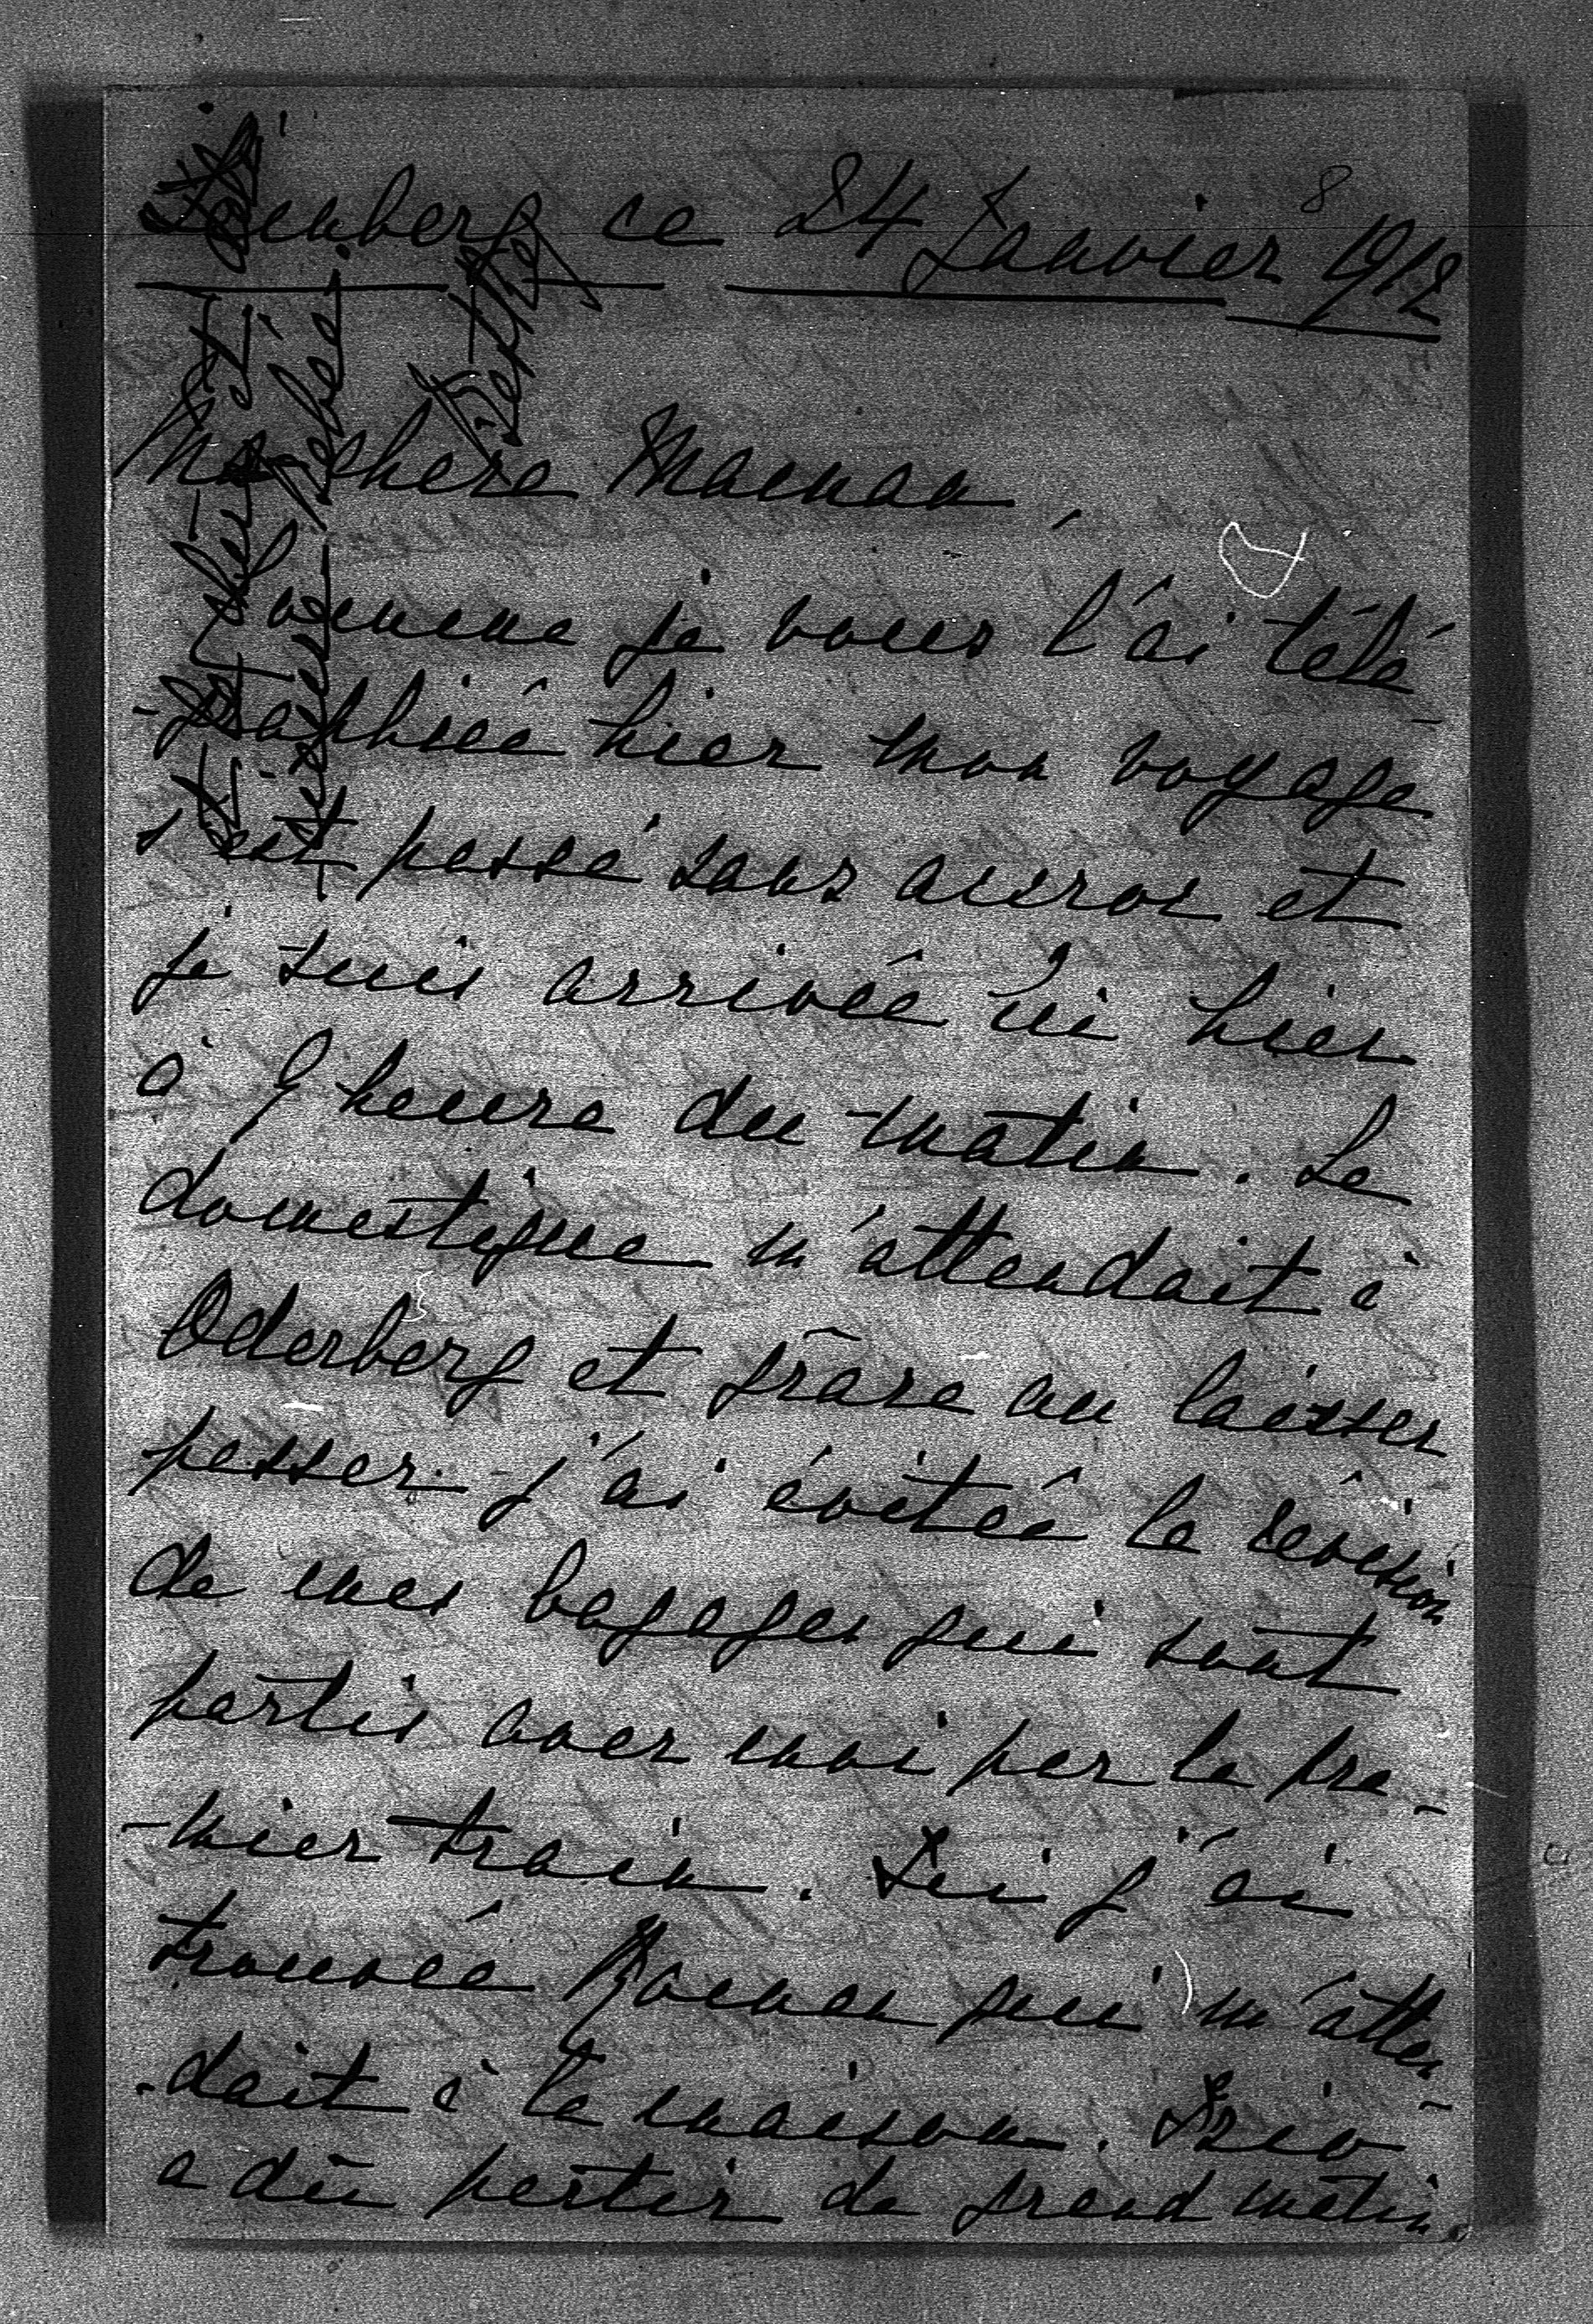 ce 24 Janvier 1912
8
Ma chère Maman,
Comme je vous l'ai télé-
-graphiée hier mon voyage
s'est passé sans accroc et
je suis arrivée ici hier
à 9 heure du matin. Le
domestique m'attendait à
Oderberg et grâce au laisser
passer j'ai évitée la révision
de mes bagages qui sont
partis avec moi par le pre-
-mier train. Ici j'ai
trouvée Roman qui m'atten-
-dait à la maison.
a dû partir de grand matin.